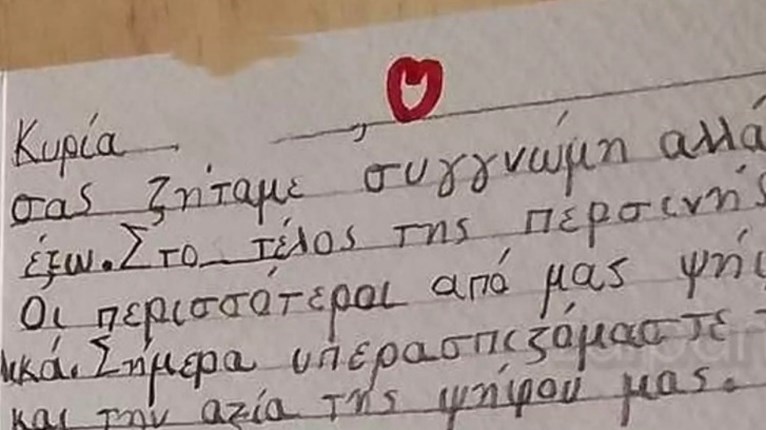 Κυρία ,
σας ζηταμε συγγνώμη αλλά
έξω. Στο τέλος της περσινής
Οι περισσότεροι από μας
Σήμερα υπερασπιζόμαστε
και την αξία της ψήφου μας.